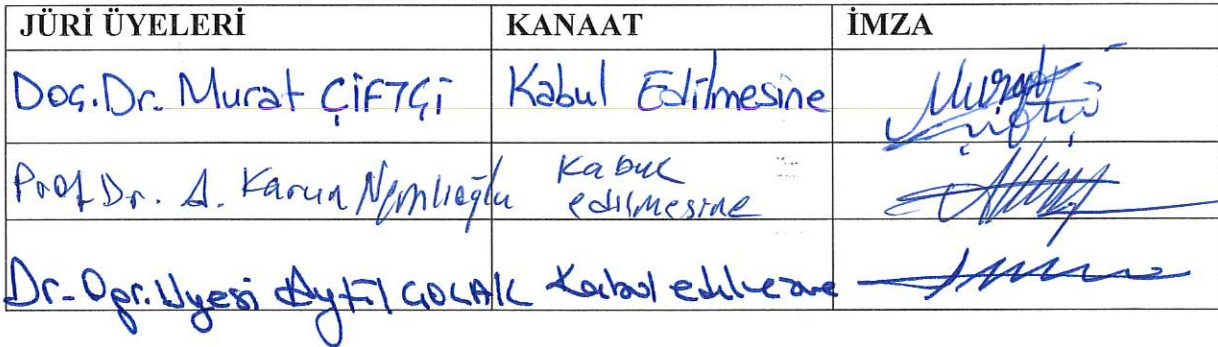 JÜRİ ÜYELERİ KANAAT İMZA
Doç.Dr. Murat ÇİFTÇİ Kabul Edilmesine Murat Çiftçi
Prof Dr. A. Karun Nemlioğlu Kabul edilmesine
Dr. Öğr. Üyesi Aytül Kabul edilmesine